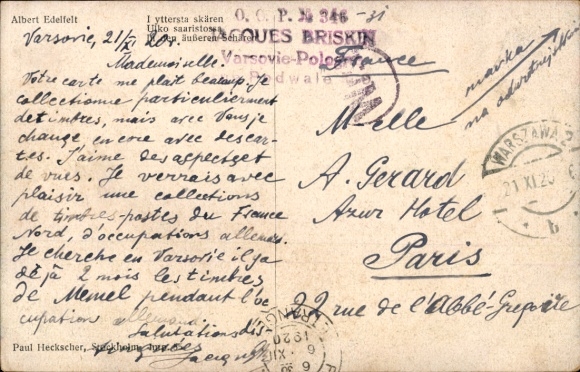 Albert Edelfelt
I yttersta skären
Ulko saaristossa
In den äußeren Schären
O. C. P. № 346 -31
JACQUES BRISKIN
Varsovie-Pologne
Varsovie, 21/XI 20 r.
Mademoiselle.
Votre carte me plait beaucoup. Je
collectionne particulierment
de timbres, mais avec Vous je
change, encore avec des car-
tes. J'aime des aspects et
de vues. Je verrais avec
plaisir une collections
de timbres-postes du France
Nord, d'occupations alleman.
Je cherche en Varsovie il ya
déjà 2 mois les timbres
de Memel pendant l'oc
cupation allemand.
Salutations dis
Jacques
France
marka
na odwrotnej
M-elle
A. Gerard
Azur Hotel
Paris
22 rue de l'Abbé-Gregoire
WARSZAWA 2
21 XI 20
b
ETRANGER
1920
Paul Heckscher, Stockholm